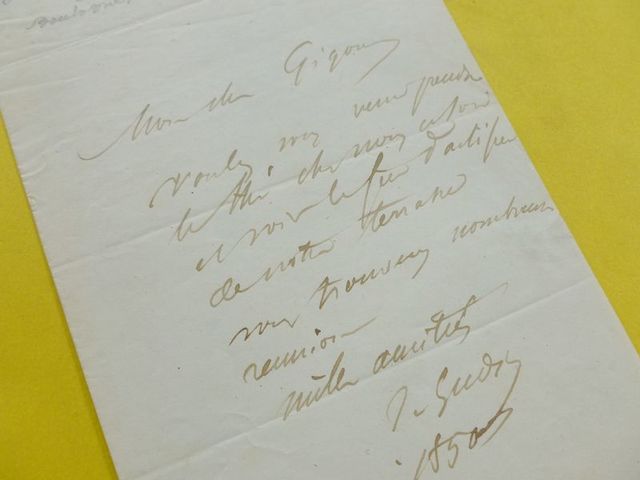 Mon cher Gigoux
voulez vous venir prendre
le thé chez nous ce soir
et voir le feu d'artifice
de notre terrasse
vous trouverez nombreuse
reunion
mille amitiés
Gudin
1850